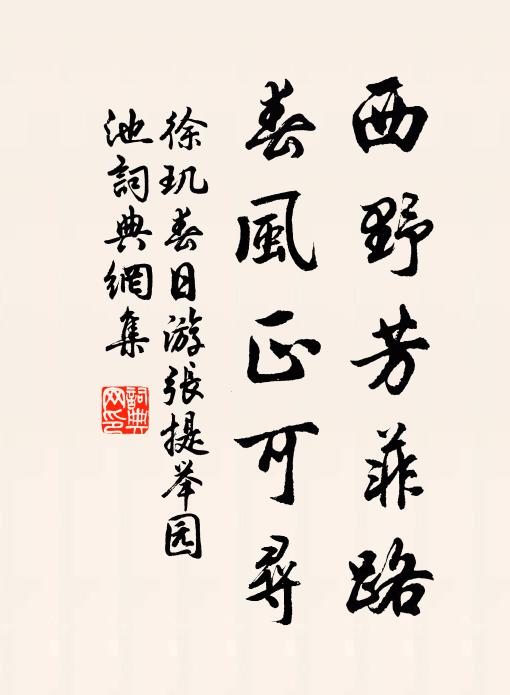 西野芳菲路
春風正可尋
徐玑春日游張提举园
池詞典網集
詞典
网印